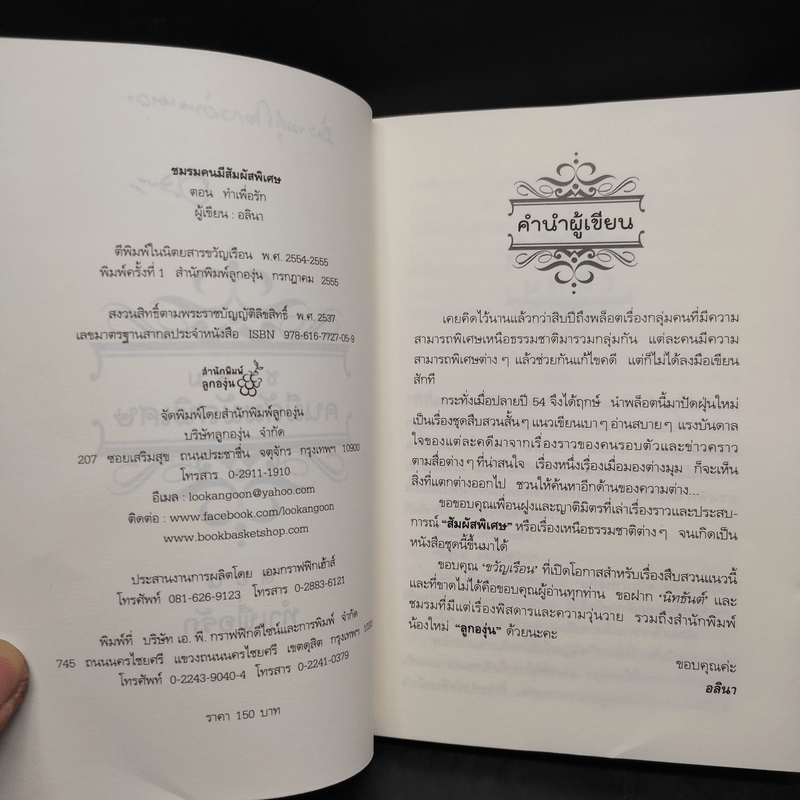 ชมรมคนมีสัมผัสพิเศษ
ตอน ทำเพื่อรัก
ผู้เขียน : อลินา
ตีพิมพ์ในนิตยสารขวัญเรือน พ.ศ. 2554-2555
พิมพ์ครั้งที่ 1 สำนักพิมพ์ลูกองุ่น กรกฎาคม 2555
สงวนสิทธิ์ตามพระราชบัญญัติลิขสิทธิ์ พ.ศ. 2537
เลขมาตรฐานสากลประจำหนังสือ ISBN 978-616-7727-05-9
สำนักพิมพ์
ลูกองุ่น
จัดพิมพ์โดยสำนักพิมพ์ลูกองุ่น
บริษัทลูกองุ่น จำกัด
207 ซอยเสริมสุข ถนนประชาชื่น จตุจักร กรุงเทพฯ 10900
โทรสาร 0-2911-1910
อีเมล : lookangoon@yahoo.com
ติดต่อ : www.facebook.com/lookangoon
www.bookbasketshop.com
ประสานงานการผลิตโดย เอมกราฟฟิกเฮ้าส์
โทรศัพท์ 081-626-9123 โทรสาร 0-2883-6121
พิมพ์ที่ บริษัท เอ. พี. กราฟฟิกดีไซน์และการพิมพ์ จำกัด
745 ถนนนครไชยศรี แขวงถนนนครไชยศรี เขตดุสิต กรุงเทพฯ 10300
โทรศัพท์ 0-2243-9040-4 โทรสาร 0-2241-0379
ราคา 150 บาท
คำนำผู้เขียน
เคยคิดไว้นานแล้วกว่าสิบปีถึงพล็อตเรื่องกลุ่มคนที่มีความ
สามารถพิเศษเหนือธรรมชาติมารวมกลุ่มกัน แต่ละคนมีความ
สามารถพิเศษต่าง ๆ แล้วช่วยกันแก้ไขคดี แต่ก็ไม่ได้ลงมือเขียน
สักที
กระทั่งเมื่อปลายปี 54 จึงได้ฤกษ์ นำพล็อตนี้มาปัดฝุ่นใหม่
เป็นเรื่องชุดสืบสวนสั้นๆ แนวเขียนเบาๆ อ่านสบายๆ แรงบันดาล
ใจของแต่ละคดีมาจากเรื่องราวของคนรอบตัวและข่าวคราว
ตามสื่อต่างๆ ที่น่าสนใจ เรื่องหนึ่งเรื่องเมื่อมองต่างมุม ก็จะเห็น
สิ่งที่แตกต่างออกไป ชวนให้ค้นหาอีกด้านของความต่าง...
ขอขอบคุณเพื่อนฝูงและญาติมิตรที่เล่าเรื่องราวและประสบ-
การณ์ "สัมผัสพิเศษ" หรือเรื่องเหนือธรรมชาติต่างๆ จนเกิดเป็น
หนังสือชุดนี้ขึ้นมาได้
ขอบคุณ 'ขวัญเรือน' ที่เปิดโอกาสสำหรับเรื่องสืบสวนแนวนี้
และที่ขาดไม่ได้คือขอบคุณผู้อ่านทุกท่าน ขอฝาก 'นิทธันต์' และ
ชมรมที่มีแต่เรื่องพิสดารและความวุ่นวาย รวมถึงสำนักพิมพ์
น้องใหม่ "ลูกองุ่น" ด้วยนะคะ
ขอบคุณค่ะ
อลินา